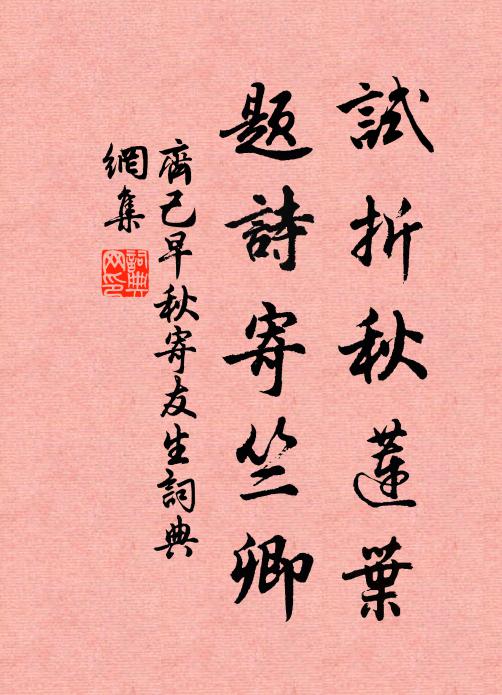 試折秋蓮葉
題詩寄竺卿
齊己早秋寄友生詞典
網集
詞典
网印